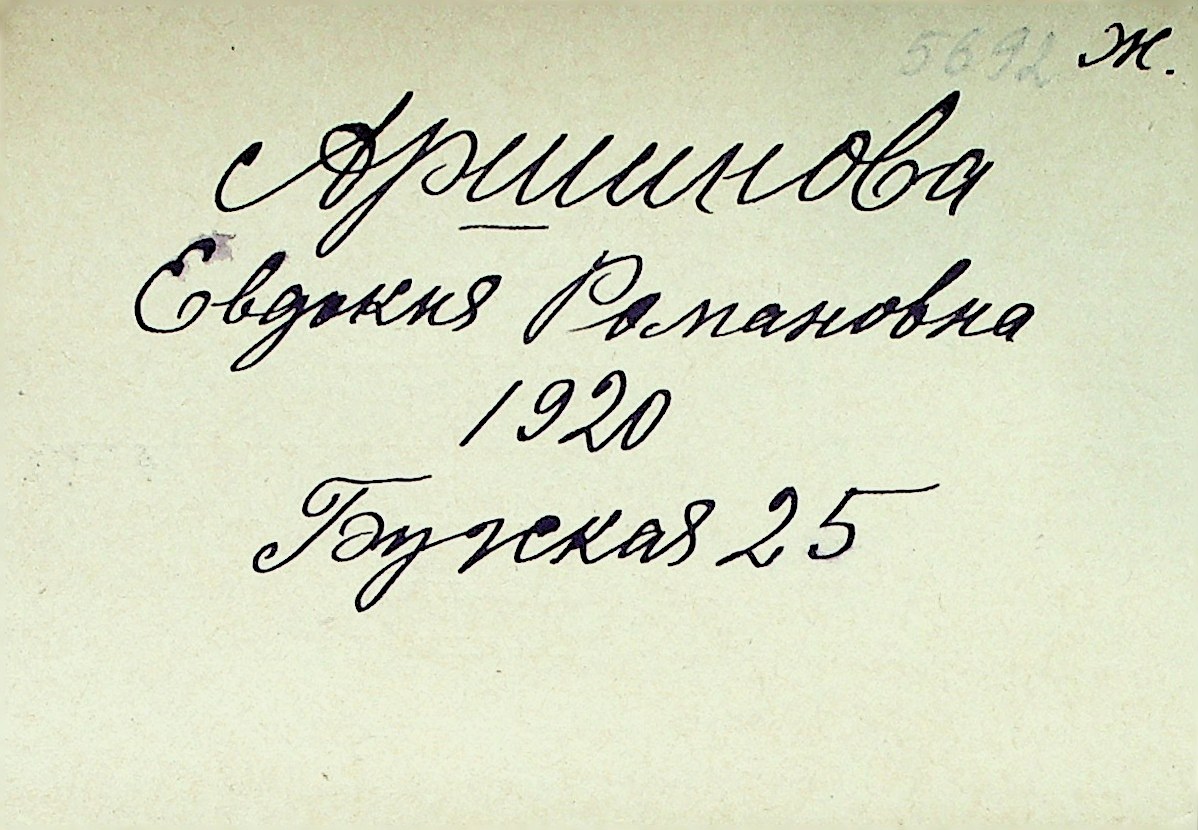 5692 ж.
Аршинова
Евдокия Романовна
1920
Бужская 25